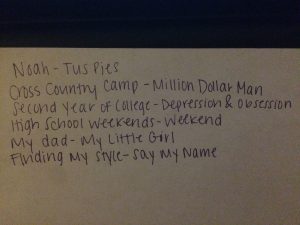 Noah - Tus Pies
Cross Country Camp - Million Dollar Man
Second Year of College - Depression & Obsession
High School Weekends - Weekend
My dad - My Little Girl
Finding My Style - Say My Name